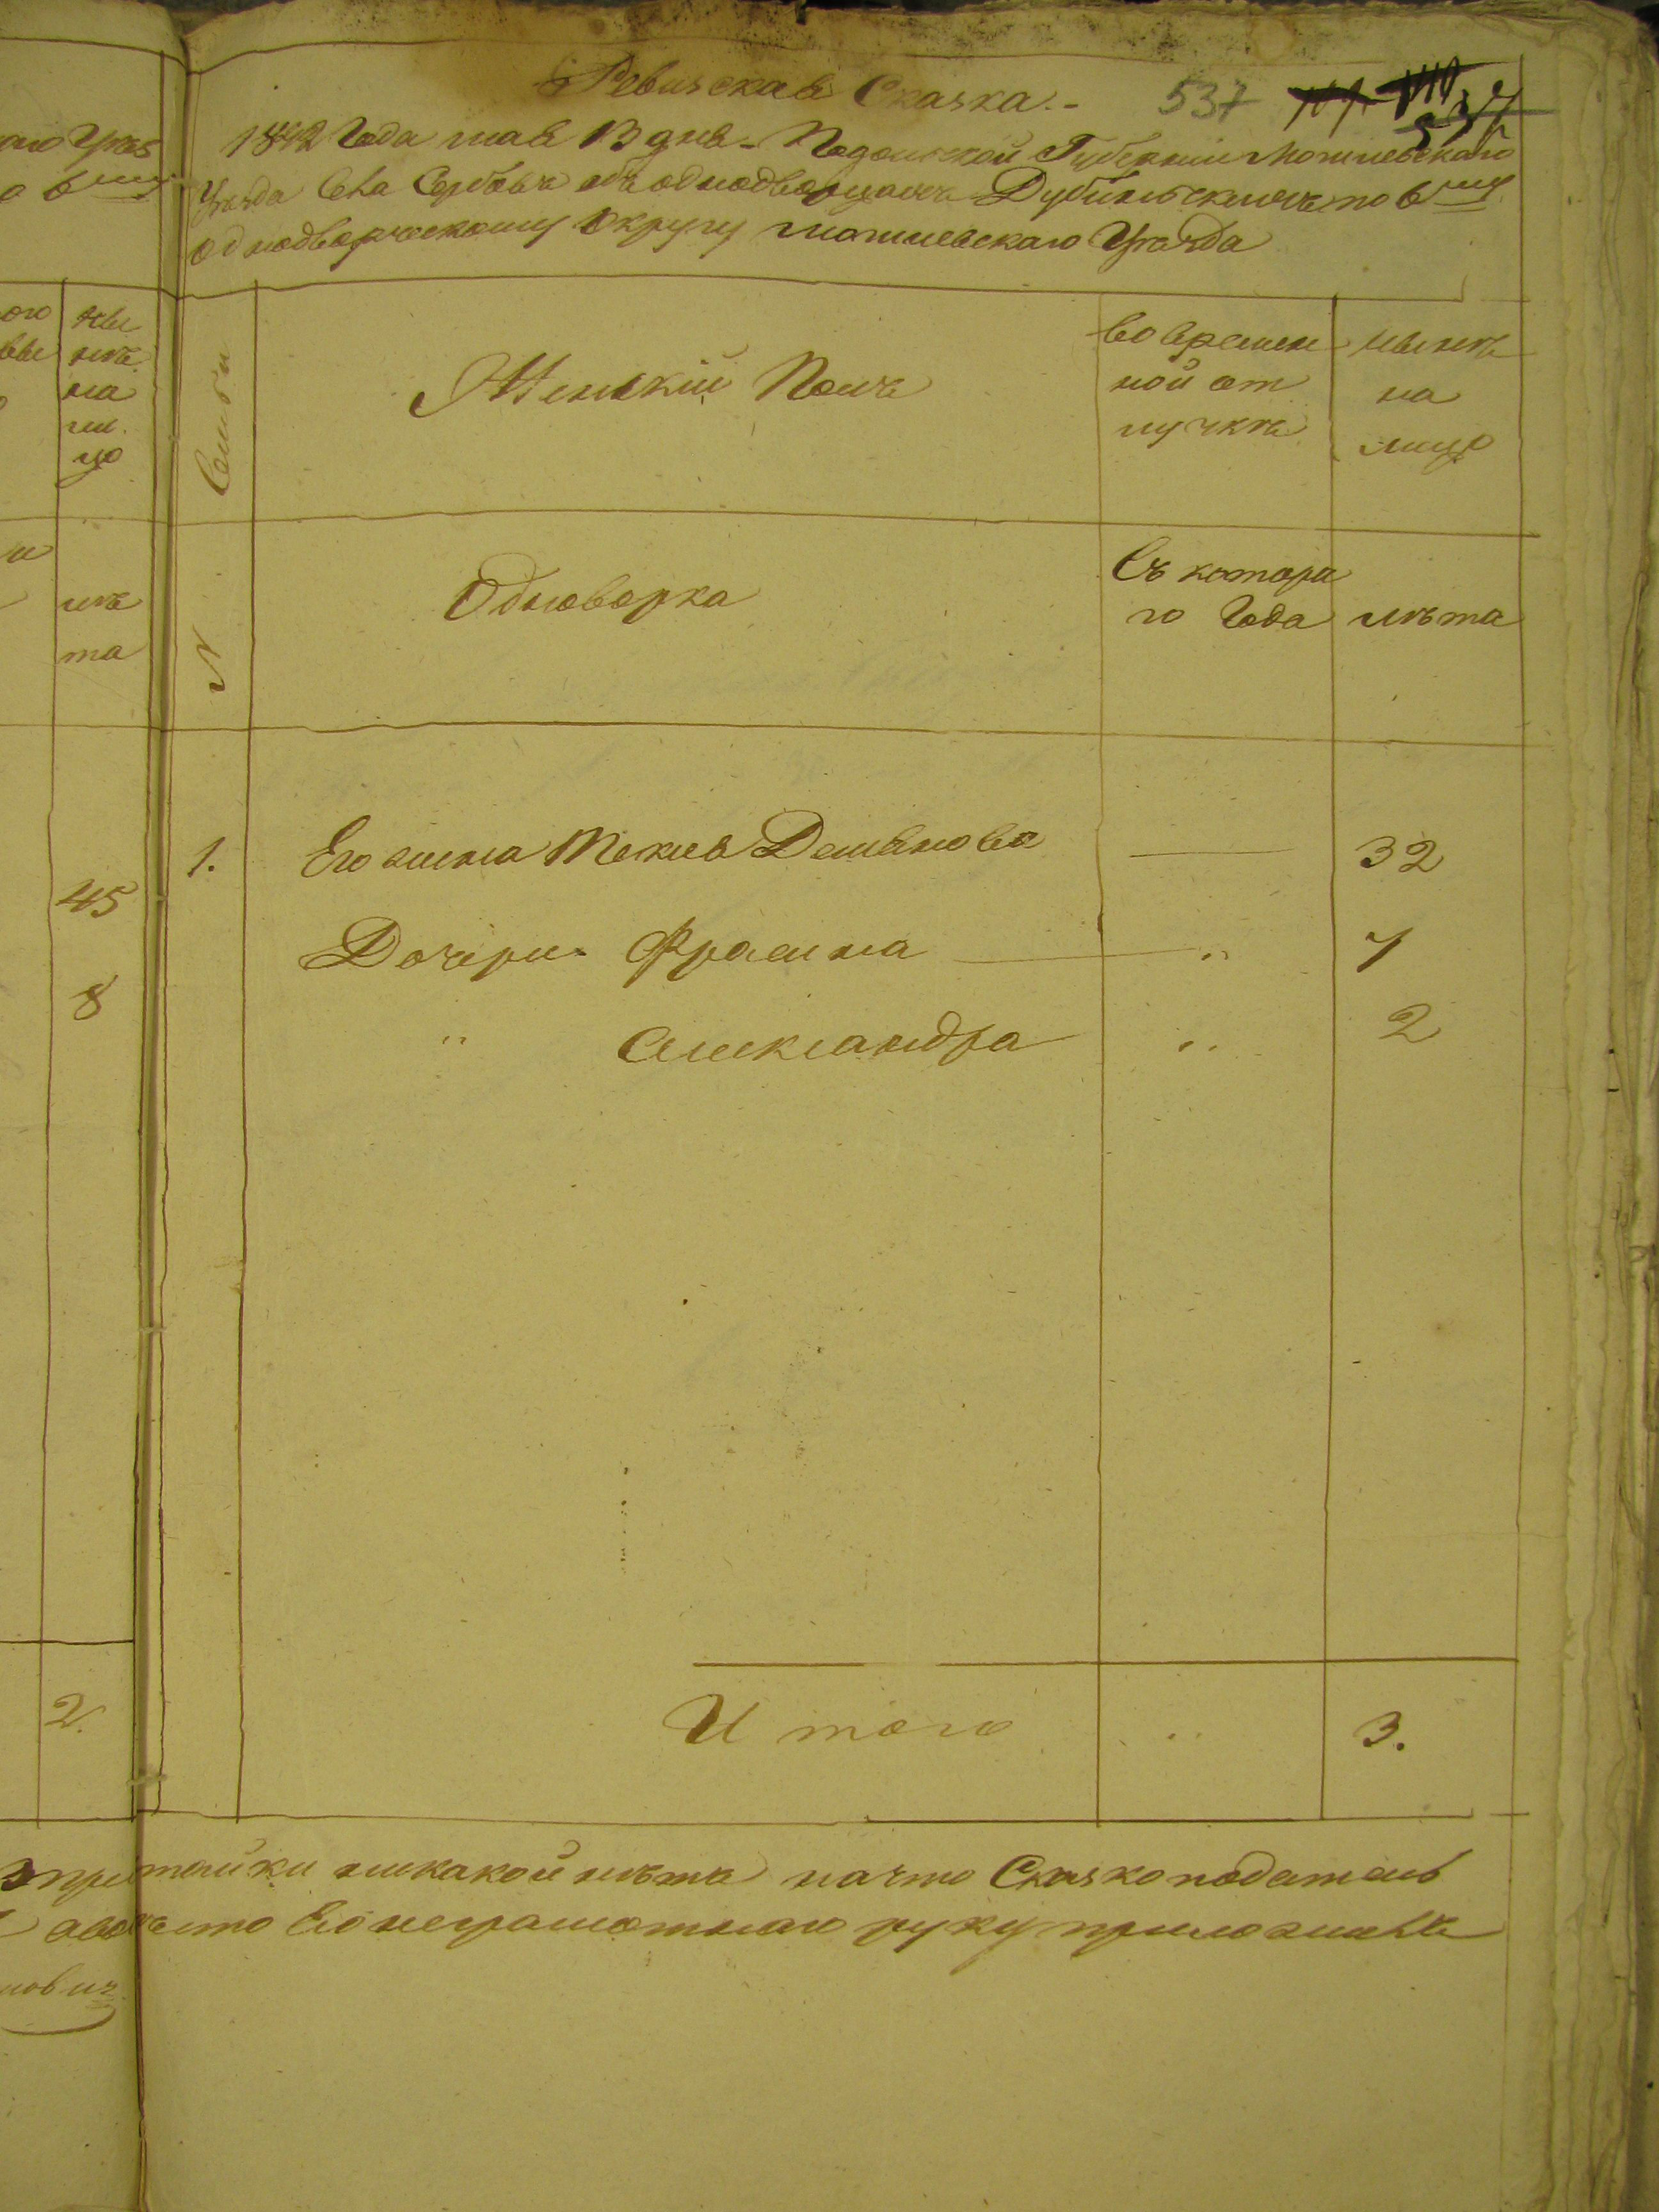 Ревизская Сказка.-
537
537
1842 Года мая 13 дня - Подольской Губернии Могилевскаго
Уезда Села Сербовъ объ однодворцахъ Дубинскихъ по 6му
однодворческому Округу могилевскаго Уезда
Семьи
Женскій Полъ
во времен
ной от
лучкѣ
нынѣ
на
лицо
N
Одноворка
Съ котора
го Года
лѣта
1.
Его жина Текля Демянова
32
Дочери Фросина
"
7
"
Александра
"
2
И того
"
3.
притайки никакой нѣтъ на что Сказкоподатель
Его неграмотнаго руку приложилъ
наго Указ
о 6му
ого
ны
нѣ
на
ли
цо
лѣ
та
45
8
2.
нович